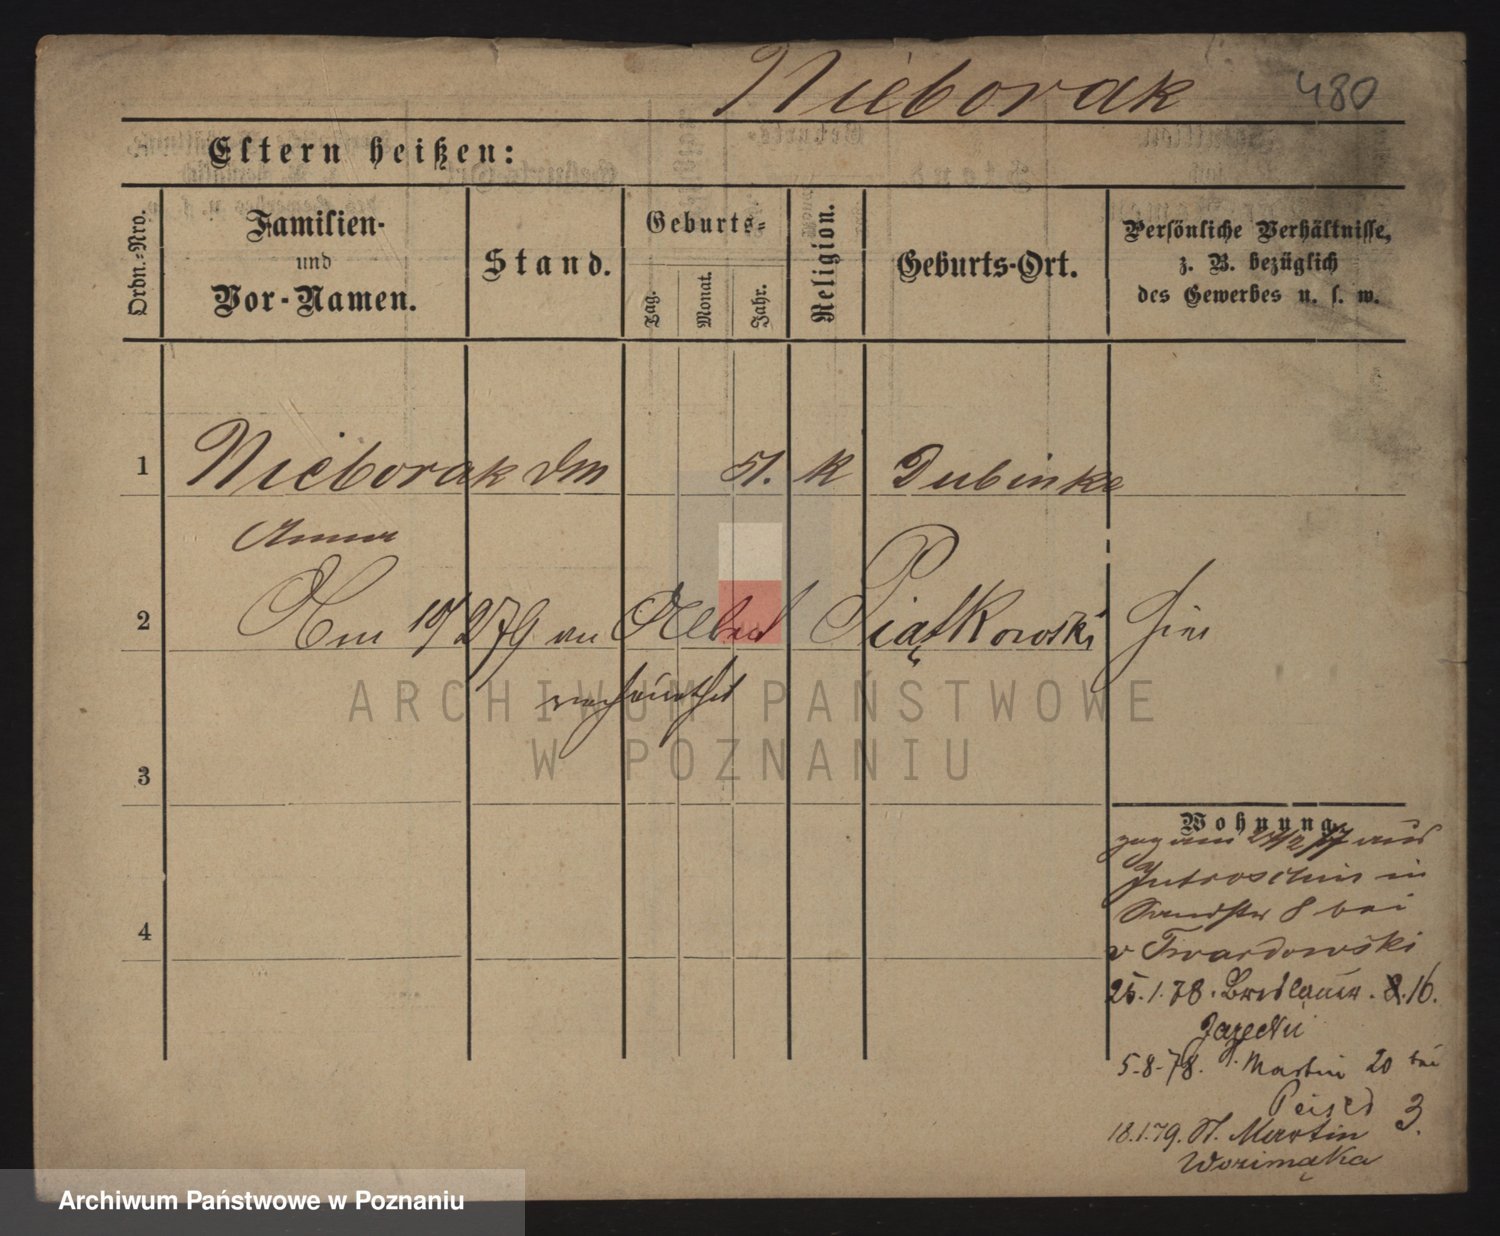 Nieborak 480
Eltern heißen:
Ordn.-Nro.
Familien-
und
Vor-Namen.
Stand.
Geburts-
Tag.
Monat.
Jahr.
Religion.
Geburts-Ort.
Persönliche Verhältnisse,
z. B. bezüglich
des Gewerbes u. s. w.
1 Nieborak 51. K Dubinke
Anna
2 Am 10/2 79 an Piątkowski hier
verheirathet
3
4
Wohnung
zog am 24/12 77 aus
Jutroschin in
8 bei
v Twardowski
25.1.78. Breslauer. 16.
5.8.78. Martin 20 bei
18.1.79. St. Martin 3.
ARCHIWUM PAŃSTWOWE
W POZNANIU
Archiwum Państwowe w Poznaniu